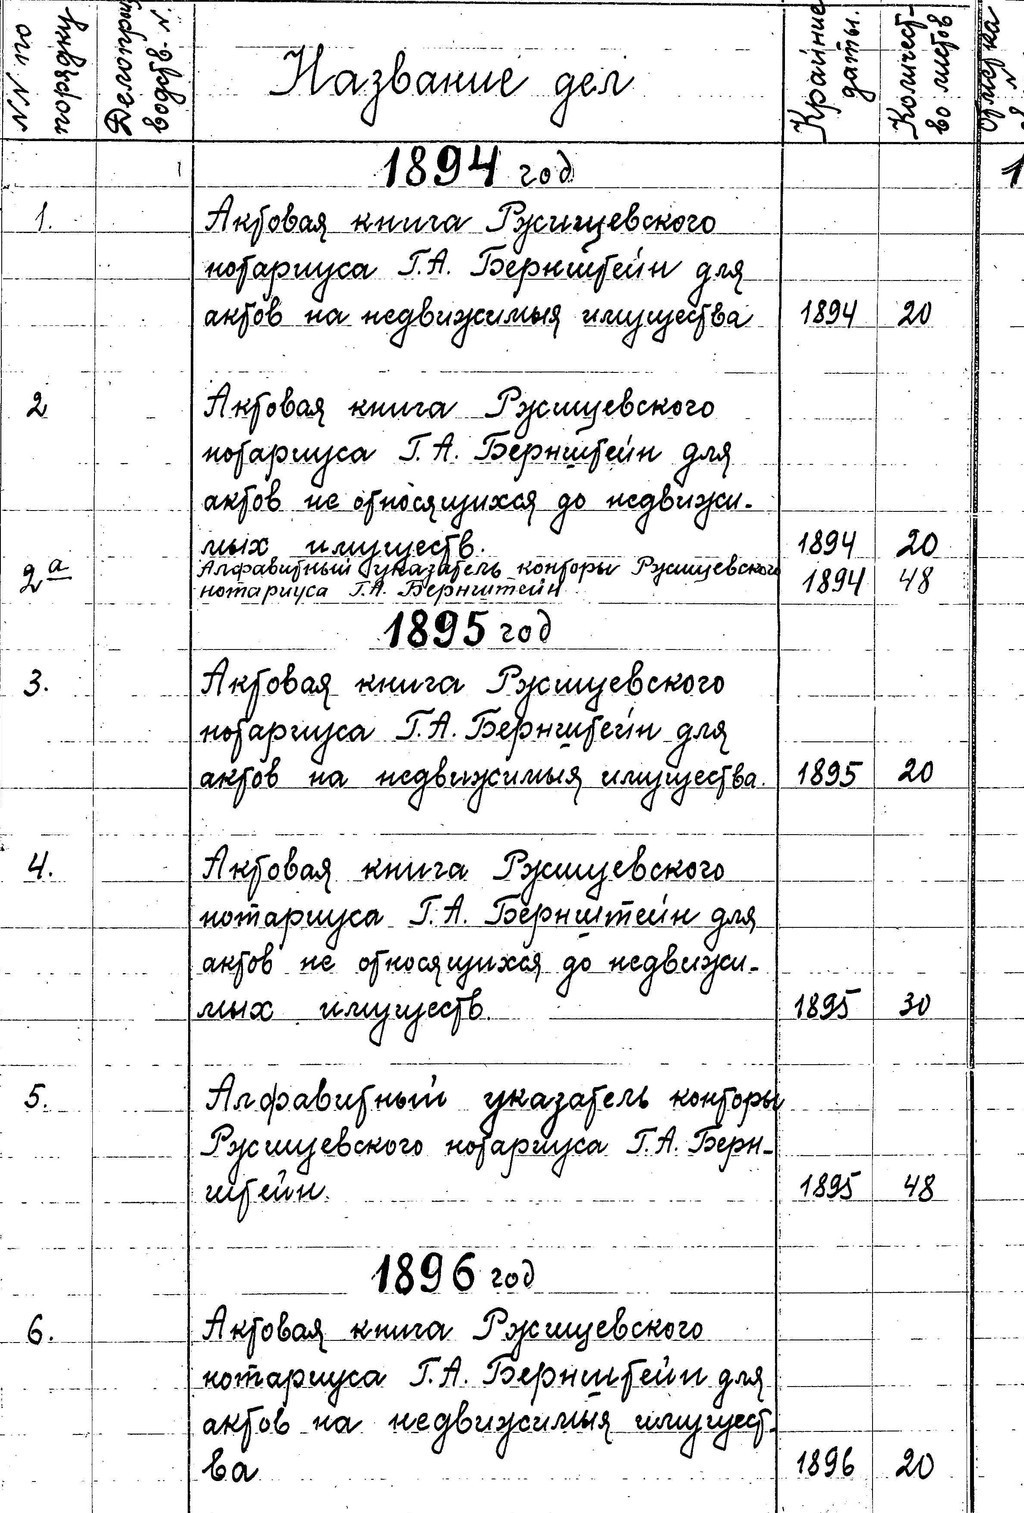 NN по порядку
Делопроиз
водств. N.
Название дел
Крайние даты.
Количест-
во листов
Отметка
1894 год
1
1. Актовая книга Ржищевского
нотариуса Г.А. Бернштейн для
актов на недвижимыя имущества 1894 20
2 Актовая книга Ржищевского
нотариуса Г.А. Бернштейн для
актов не относящихся до недвижи-
мых имуществ. 1894 20
2а Алфавитный указатель конторы Ржищевского 1894 48
нотариуса Г.А. Бернштейн
1895 год
3. Актовая книга Ржищевского
нотариуса Г.А. Бернштейн для
актов на недвижимыя имущества. 1895 20
4. Актовая книга Ржищевского
нотариуса Г.А. Бернштейн для
актов не относящихся до недвижи-
мых имуществ. 1895 30
5. Алфавитный указатель конторы
Ржищевского нотариуса Г.А. Берн-
штейн. 1895 48
1896 год
6. Актовая книга Ржищевского
нотариуса Г.А. Бернштейн для
актов на недвижимыя имущест-
ва 1896 20